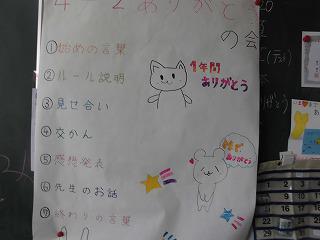 4-2ありがとう
の会
①始めの言葉
②ルール説明
③見せ合い
④交かん
⑤感想発表
⑥先生のお話
⑦終わりの言葉
1年間
ありがとう
ありがとう